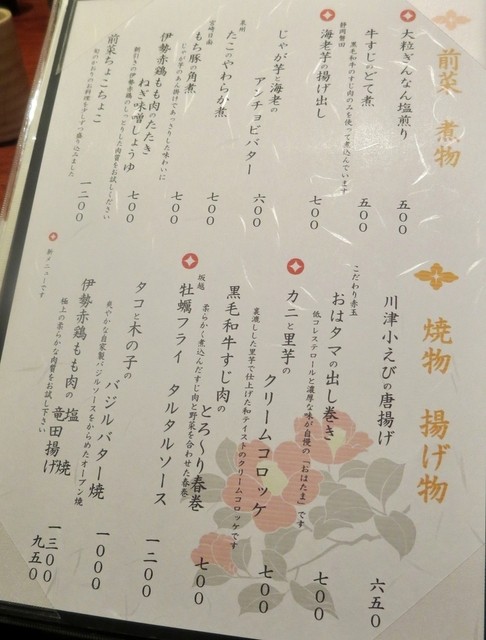 前菜 煮物
大粒ぎんなん塩煎り 五〇〇
牛すじのどて煮 五〇〇
黒毛和牛のすじ肉のみを使って煮込んでいます
静岡磐田
海老芋の揚げ出し 七〇〇
じゃが芋と海老の
アンチョビバター 六〇〇
泉州
たこのやわらか煮 七〇〇
宮崎日南
もち豚の角煮 七〇〇
じゃが芋のあん掛けであっさりした味わいに
伊勢赤鶏もも肉のたたき
ねぎ味噌しょうゆ 七〇〇
朝引きの伊勢赤鶏のしっとりした肉質をお試しください
前菜ちょこちょこ 一二〇〇
旬のかおりのお料理を少しずつ盛り込みました
焼物 揚げ物
川津小えびの唐揚げ 六五〇
こだわり赤玉
おはタマの出し巻き 七〇〇
低コレステロールと濃厚な味が自慢の「おはたま」です
カニと里芋の
クリームコロッケ 七〇〇
裏漉しした里芋で仕上げた和テイストのクリームコロッケです
黒毛和牛すじ肉の
とろ〜り春巻 七〇〇
柔らかく煮込んだすじ肉と野菜を合わせた春巻
坂越
牡蠣フライ タルタルソース 一二〇〇
タコと木の子の
バジルバター焼 一〇〇〇
爽やかな自家製バジルソースをからめたオーブン焼
伊勢赤鶏もも肉の塩焼 一三〇〇
竜田揚げ 九五〇
極上の柔らかな肉質をお試し下さい
新メニューです